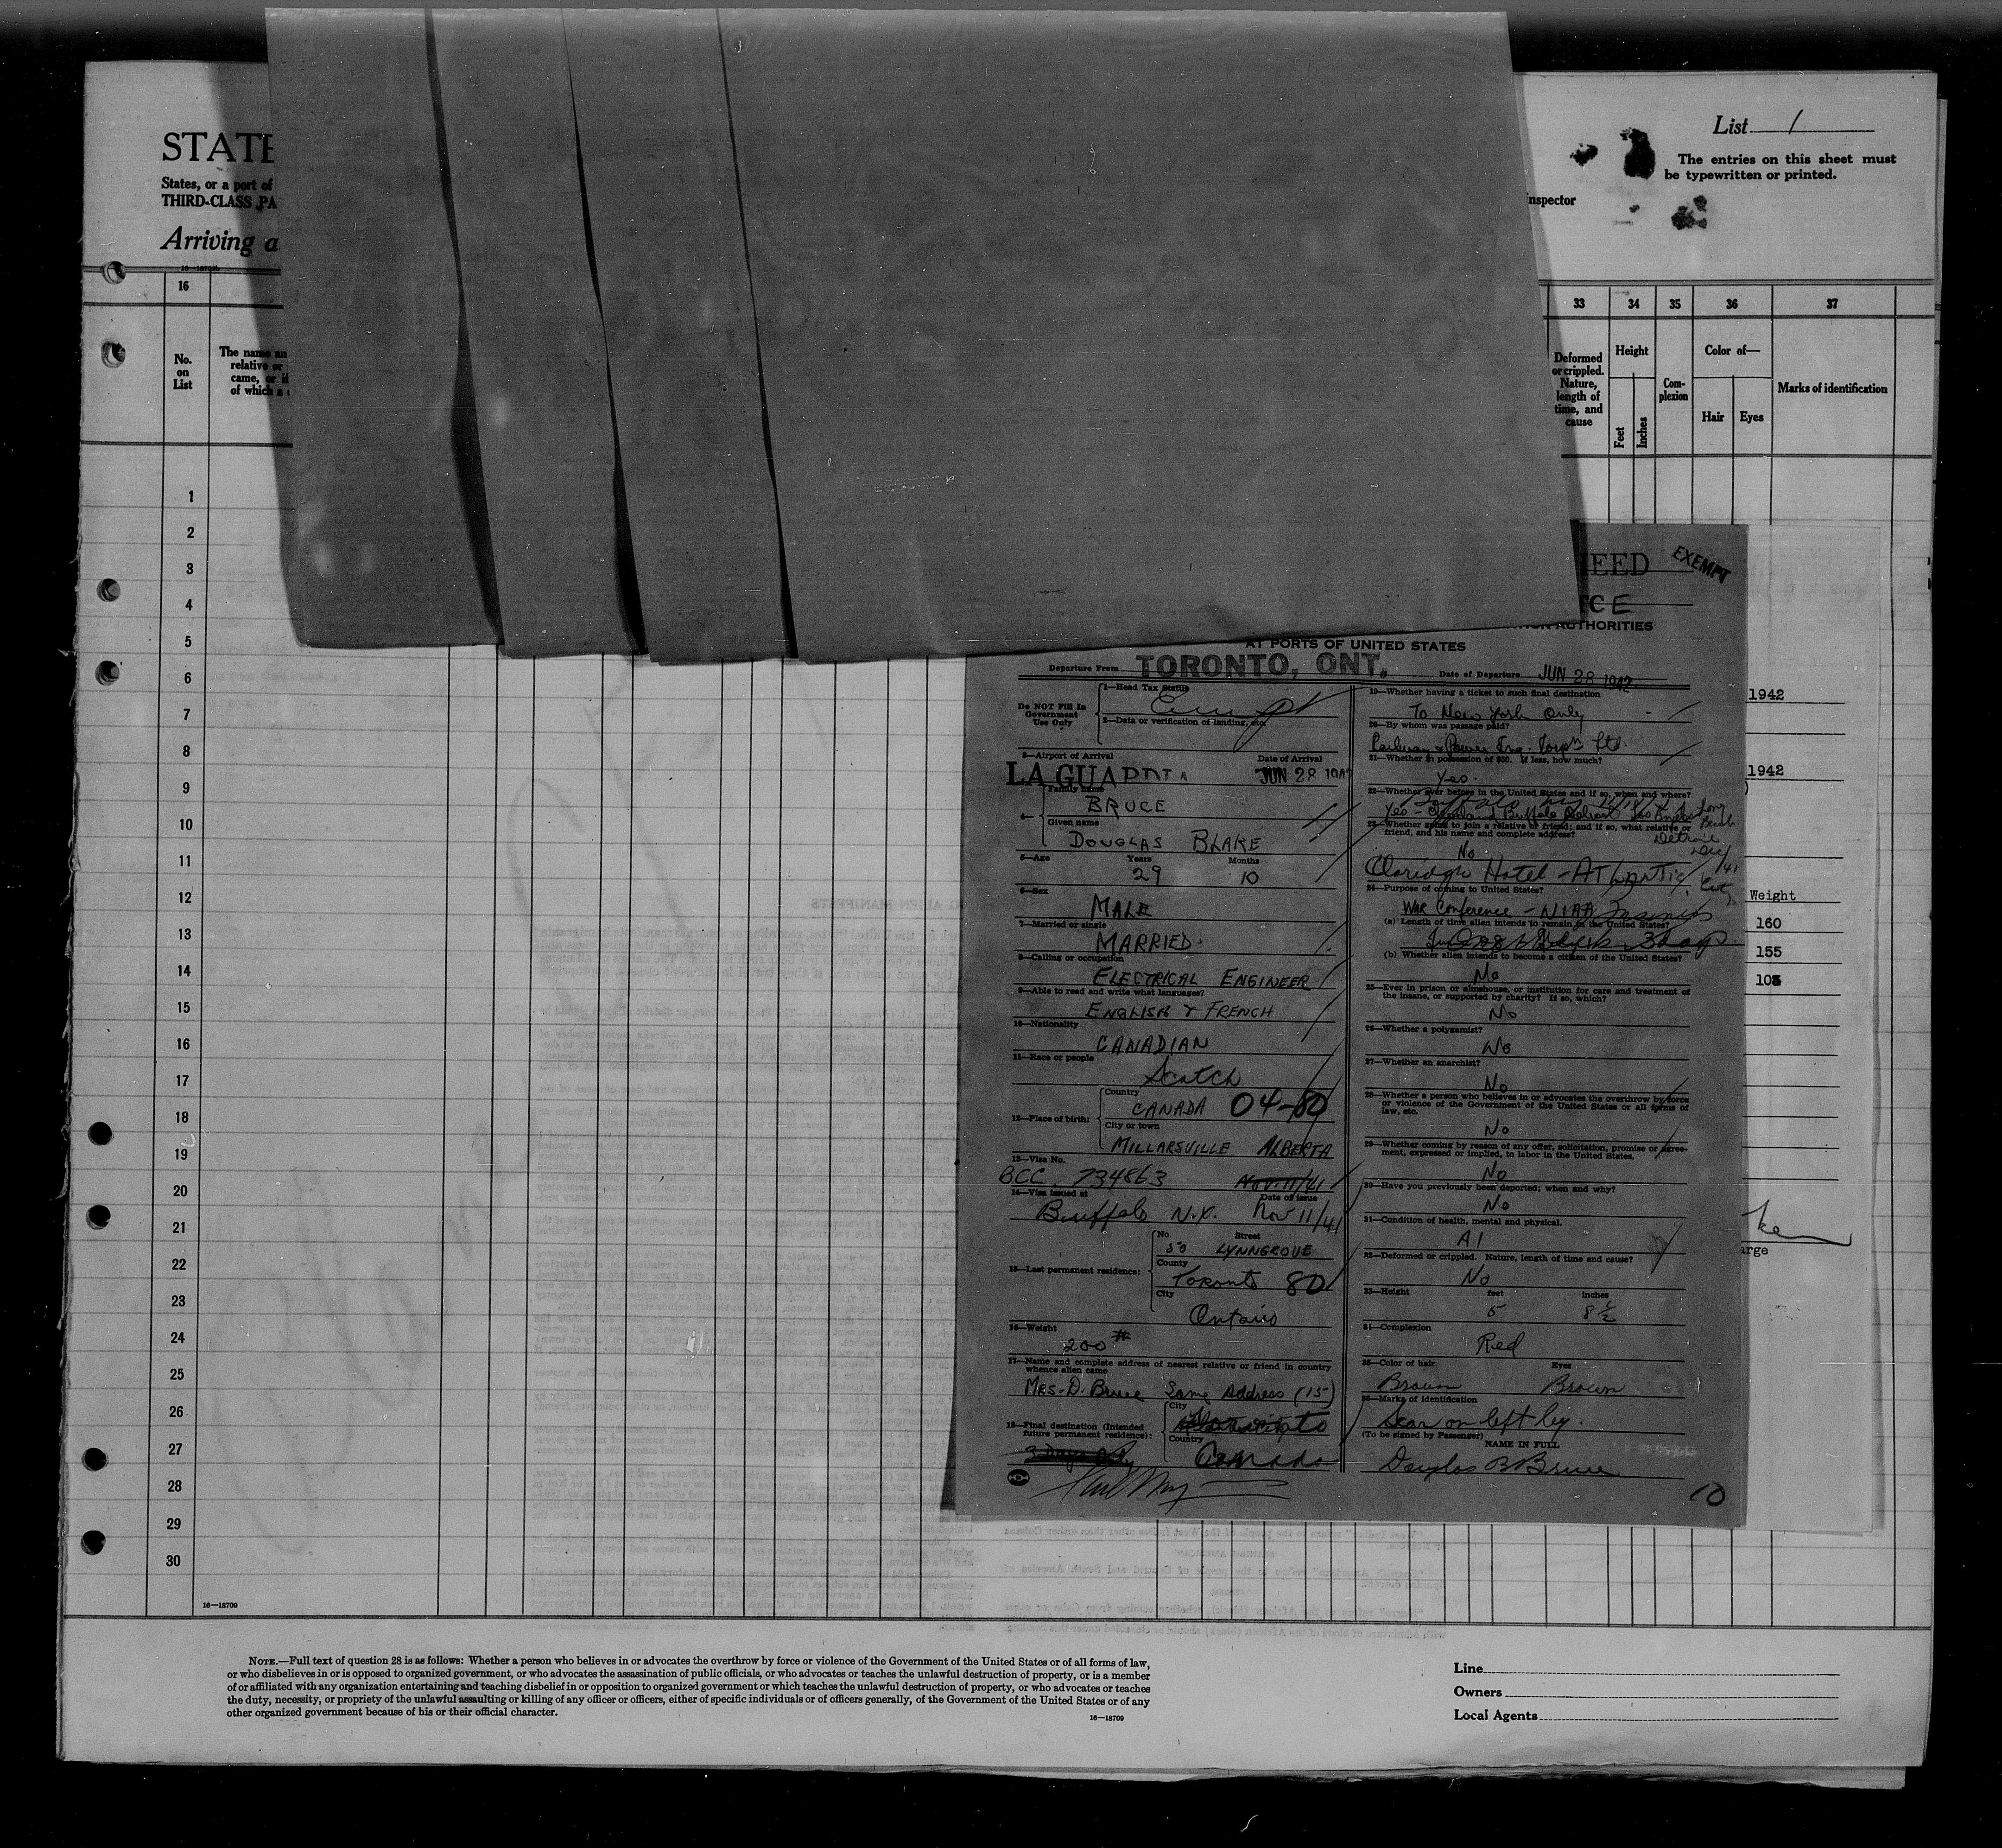 STATE
States, or a port of
THIRD-CLASS PA
Arriving a
List 1
The entries on this sheet must
be typewritten or printed.
nspector
16
33 34 35 36 37
No.
on
List
The name an
relative or
came, or if
of which a
Deformed
or crippled.
Nature,
length of
time, and
cause
Height
Feet
Inches
Com-
plexion
Color of—
Hair
Eyes
Marks of identification
1
2
3
4
5
6
7
8
9
10
11
12
13
14
15
16
17
18
19
20
21
22
23
24
25
26
27
28
29
30
16—18709
EXEMPT
AUTHORITIES
AT PORTS OF UNITED STATES
Departure From TORONTO, ONT. Date of Departure JUN 28 1942
Do NOT Fill In
Government
Use Only
1—Head Tax Status
2—Data or verification of landing, etc.
3—Airport of Arrival Date of Arrival
LA GUARDIA JUN 28 1942
Family name
BRUCE
4— Given name
DOUGLAS BLAKE
5—Age Years Months
29 10
6—Sex
MALE
7—Married or single
MARRIED.
8—Calling or occupation
ELECTRICAL ENGINEER
9—Able to read and write what languages?
ENGLISH & FRENCH
10—Nationality
CANADIAN
11—Race or people
Scotch
12—Place of birth: Country
CANADA 04-80
City or town
MILLARSVILLE ALBERTA
13—Visa No.
BCC. 734863 Nov. 11/41
14—Visa issued at Date of issue
Buffalo N.Y. Nov 11/41
15—Last permanent residence: No. Street
50 LYNNGROVE
County
Toronto 80
City
Ontario
16—Weight
200 #
17—Name and complete address of nearest relative or friend in country
whence alien came
Mrs. D. Bruce Same Address (15)
18—Final destination (Intended
future permanent residence): City
Toronto
Country
Canada
19—Whether having a ticket to such final destination
To New York Only
20—By whom was passage paid?
Railway & Power Eng. Corpn Ltd.
21—Whether in possession of $50. If less, how much?
Yes.
22—Whether ever before in the United States and if so, when and where?
23—Whether going to join a relative or friend; and if so, what relative or
friend, and his name and complete address?
Detroit
Dec/41
No
Claridge Hotel - Atlantic City
24—Purpose of coming to United States?
War Conference -
(a) Length of time alien intends to remain in the United States?
3 days
(b) Whether alien intends to become a citizen of the United States?
No
25—Ever in prison or almshouse, or institution for care and treatment of
the insane, or supported by charity? If so, which?
No
26—Whether a polygamist?
No
27—Whether an anarchist?
No
28—Whether a person who believes in or advocates the overthrow by force
or violence of the Government of the United States or all forms of
law, etc.
No
29—Whether coming by reason of any offer, solicitation, promise or agree-
ment, expressed or implied, to labor in the United States.
No
30—Have you previously been deported; when and why?
No
31—Condition of health, mental and physical.
A1
32—Deformed or crippled. Nature, length of time and cause?
No
33—Height feet inches
5 8 1/2
34—Complexion
Red
35—Color of hair Eyes
Brown Brown
36—Marks of identification
Scar on left leg.
(To be signed by Passenger) NAME IN FULL
Douglas B Bruce
10
1942
1942
Weight
160
155
103
arge
NOTE.—Full text of question 28 is as follows: Whether a person who believes in or advocates the overthrow by force or violence of the Government of the United States or of all forms of law,
or who disbelieves in or is opposed to organized government, or who advocates the assassination of public officials, or who advocates or teaches the unlawful destruction of property, or is a member
of or affiliated with any organization entertaining and teaching disbelief in or opposition to organized government or which teaches the unlawful destruction of property, or who advocates or teaches
the duty, necessity, or propriety of the unlawful assaulting or killing of any officer or officers, either of specific individuals or of officers generally, of the Government of the United States or of any
other organized government because of his or their official character.
16—18709
Line
Owners
Local Agents